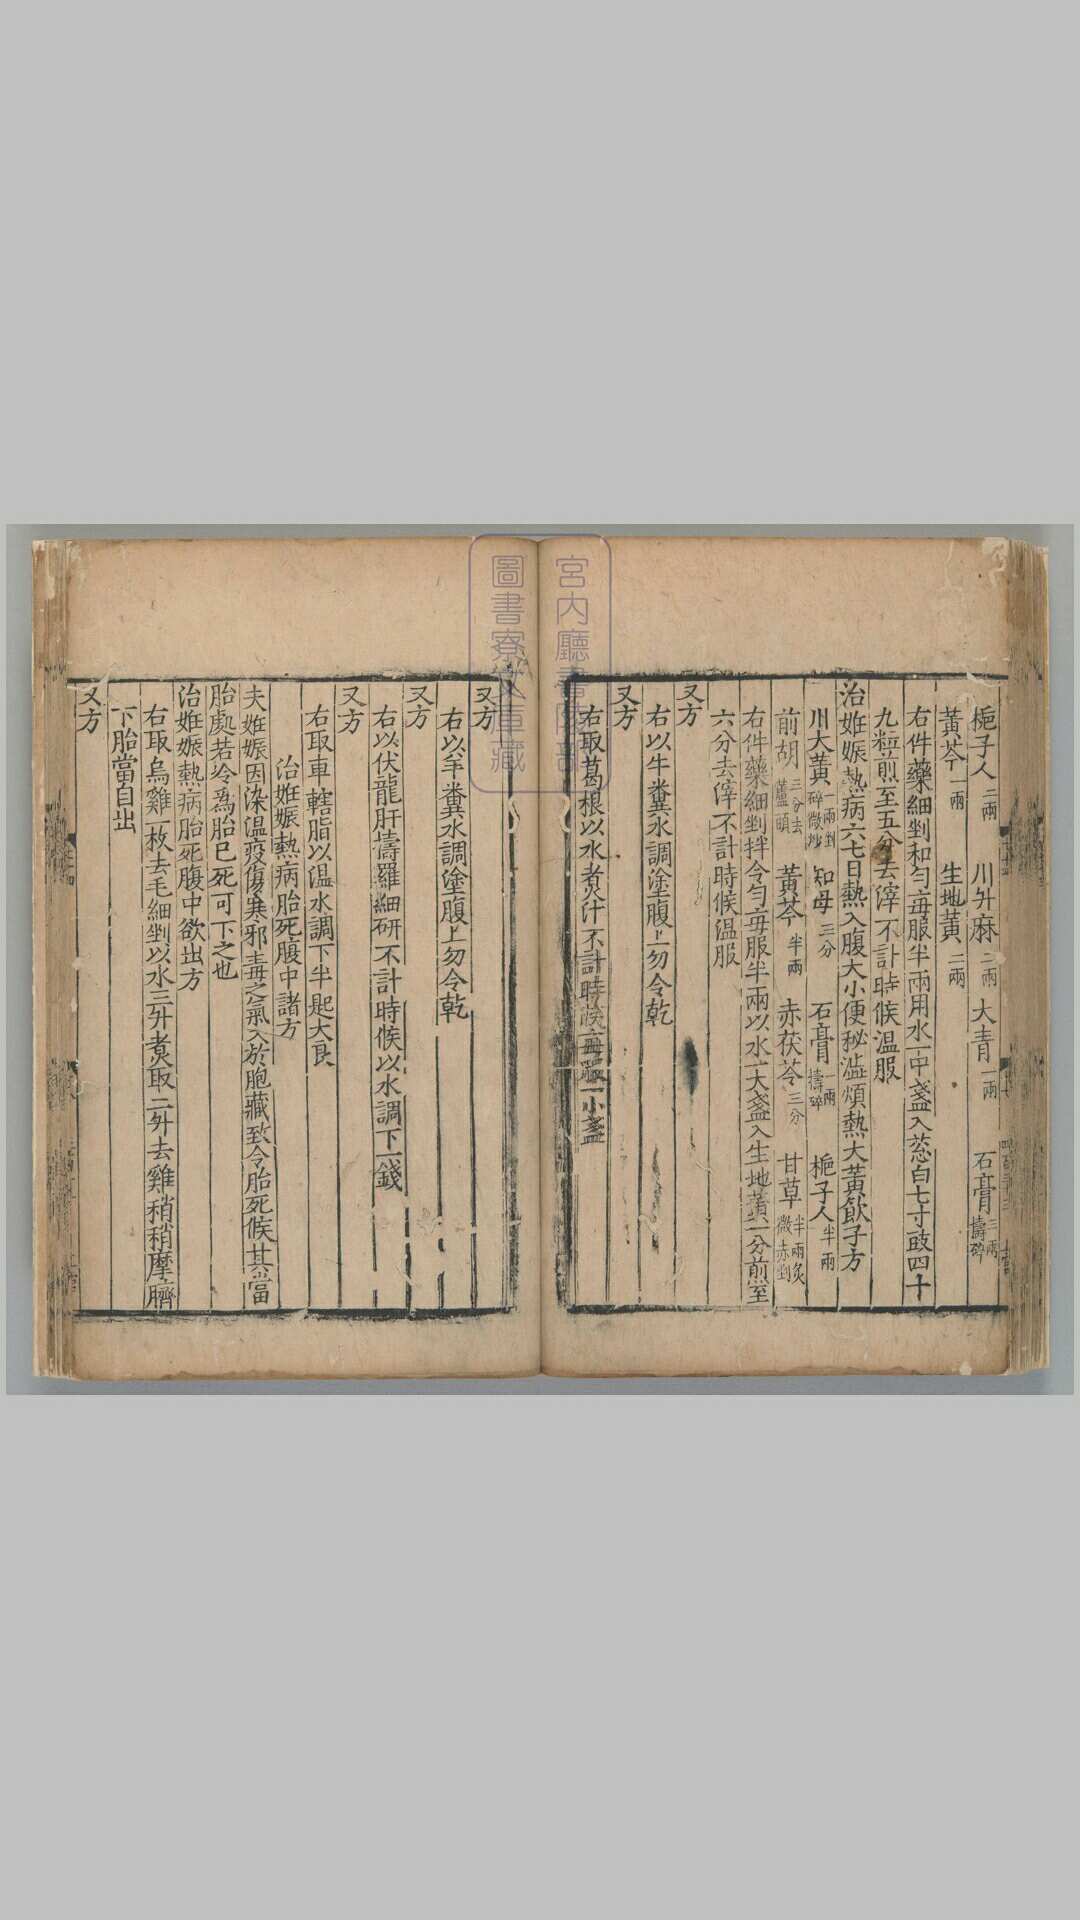 梔子人二兩 川升麻二兩 大青一兩 石膏三兩擣碎
黃芩一兩 生地黃二兩
右件藥細剉和勻每服半兩用水一中盞入葱白七寸豉四十
九粒煎至五分去滓不計時候温服
治姙娠熱病六七日熱入腹大小便秘澁煩熱大黃飲子方
川大黃一兩剉碎微炒 知母三分 石膏一兩擣碎 梔子人半兩
前胡三分去蘆頭 黃芩半兩 赤茯苓三分 甘草半兩炙微赤剉
右件藥細剉拌令勻每服半兩以水一大盞入生地黃一分煎至
六分去滓不計時候温服
又方
右以牛糞水調塗腹上勿令乾
又方
右取葛根以水煮汁不計時候每服一小盞
又方
右以羊糞水調塗腹上勿令乾
又方
右以伏龍肝擣羅細研不計時候以水調下一錢
又方
右取車轄脂以温水調下半匙大良
治姙娠熱病胎死腹中諸方
夫姙娠因染温疫傷寒邪毒之氣入於胞藏致令胎死候其當
胎處若冷爲胎已死可下之也
治姙娠熱病胎死腹中欲出方
右取烏雞一枚去毛細剉以水三升煮取二升去雞稍稍摩臍
下胎當自出
又方
宮内廳書陵部
圖書寮文庫藏